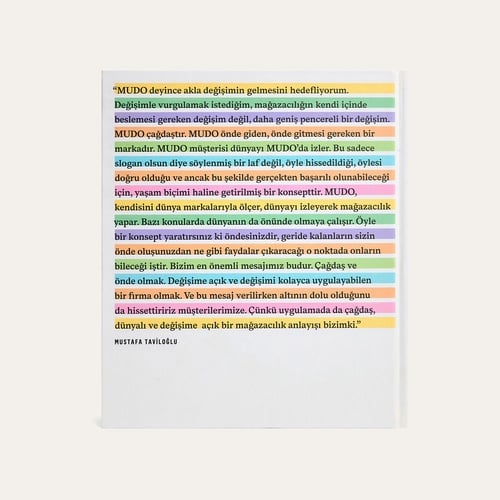 “MUDO deyince akla değişimin gelmesini hedefliyorum.
Değişimle vurgulamak istediğim, mağazacılığın kendi içinde
beslemesi gereken değişim değil, daha geniş pencereli bir değişim.
MUDO çağdaştır. MUDO önde giden, önde gitmesi gereken bir
markadır. MUDO müşterisi dünyayı MUDO’da izler. Bu sadece
slogan olsun diye söylenmiş bir laf değil, öyle hissedildiği, öylesi
doğru olduğu ve ancak bu şekilde gerçekten başarılı olunabileceği
için, yaşam biçimi haline getirilmiş bir konsepttir. MUDO,
kendisini dünya markalarıyla ölçer, dünyayı izleyerek mağazacılık
yapar. Bazı konularda dünyanın da önünde olmaya çalışır. Öyle
bir konsept yaratırsınız ki öndesinizdir, geride kalanların sizin
önde oluşunuzdan ne gibi faydalar çıkaracağı o noktada onların
bileceği iştir. Bizim en önemli mesajımız budur. Çağdaş ve
önde olmak. Değişime açık ve değişimi kolayca uygulayabilen
bir firma olmak. Ve bu mesaj verilirken altının dolu olduğunu
da hissettiririz müşterilerimize. Çünkü uygulamada da çağdaş,
dünyalı ve değişime açık bir mağazacılık anlayışı bizimki.”
MUSTAFA TAVİLOĞLU